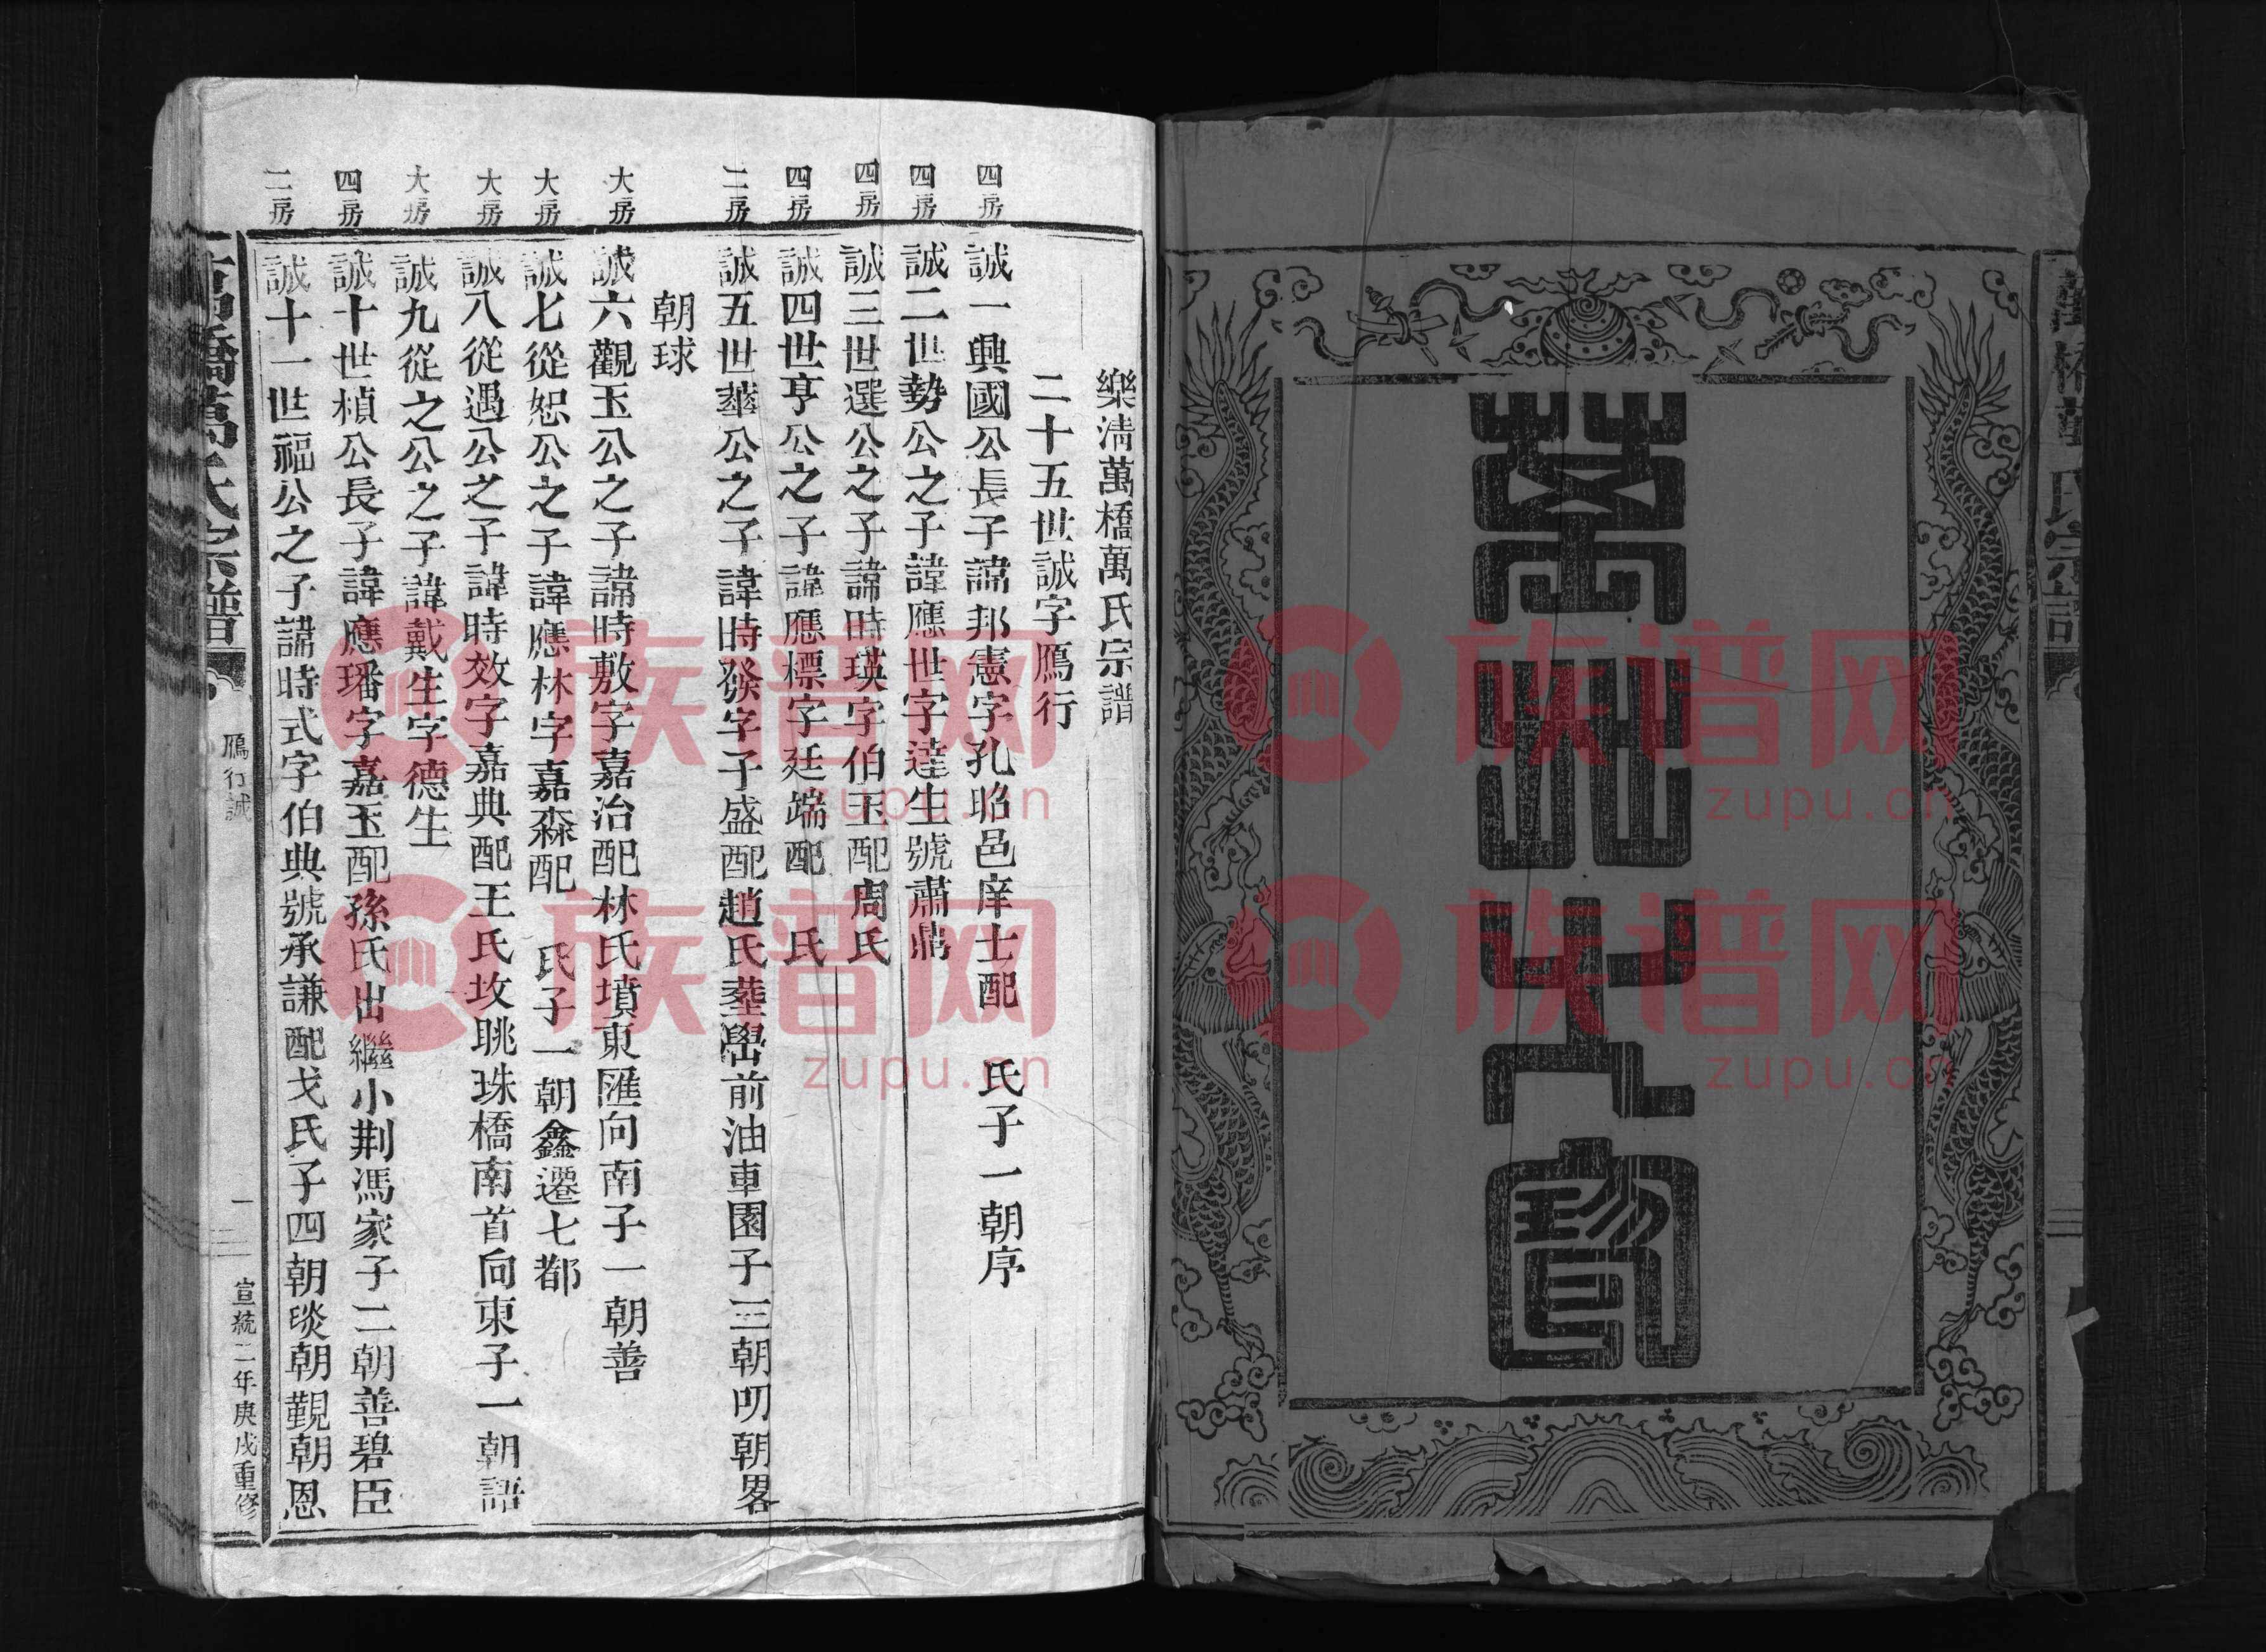 萬橋萬氏宗譜
樂淸萬橋萬氏宗譜
二十五世誠字鴈行
四房
誠一興國公長子諱邦憲字孔昭邑庠士配 氏子一朝序
四房
誠二世勢公之子諱應世字達生號肅鼎
四房
誠三世選公之子諱時瑛字伯玉配周氏
四房
誠四世亨公之子諱應標字廷端配 氏
二房
誠五世華公之子諱時發字子盛配趙氏塟嶨前油車園子三朝明朝畧
朝球
大房
誠六觀玉公之子諱時敷字嘉治配林氏墳東匯向南子一朝善
大房
誠七從恕公之子諱應林字嘉森配 氏子一朝鑫遷七都
大房
誠八從遇公之子諱時效字嘉典配王氏坟眺珠橋南首向東子一朝語
大房
誠九從之公之子諱戴生字德生
四房
誠十世楨公長子諱應璠字嘉玉配孫氏出繼小荆馮家子二朝善碧臣
二房
誠十一世福公之子諱時式字伯典號承謙配戈氏子四朝琰朝覲朝恩
萬橋萬氏宗譜
鴈行誠
一
宣統二年庚戌重修
族谱网
zupu.cn
族谱网
zupu.cn
族谱网
zupu.cn
族谱网
zupu.cn